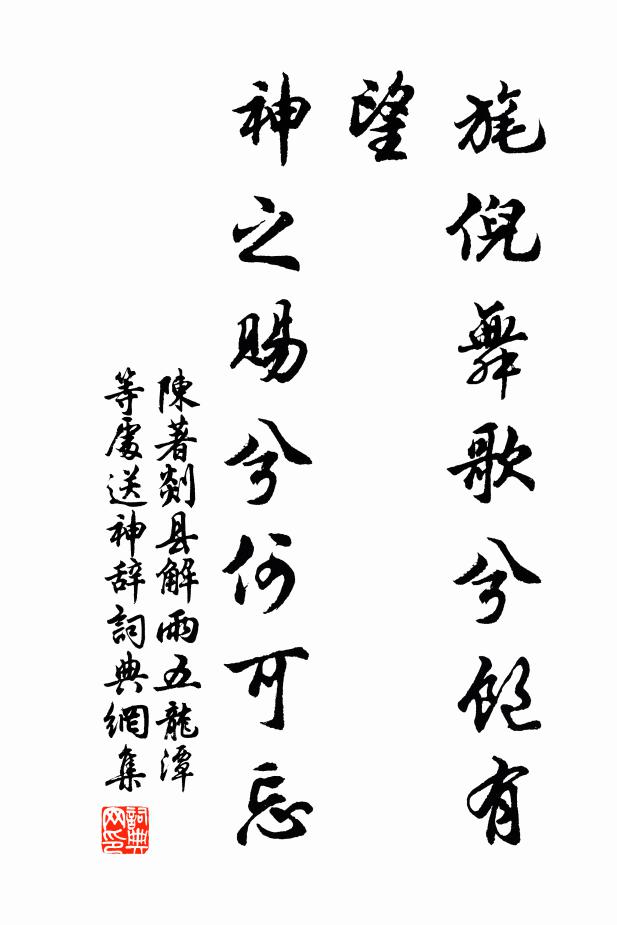 旄倪舞歌兮飽有
望
神之賜兮何可忘
陳著剡县解雨五龍潭
等處送神辞詞典網集
詞典
网印